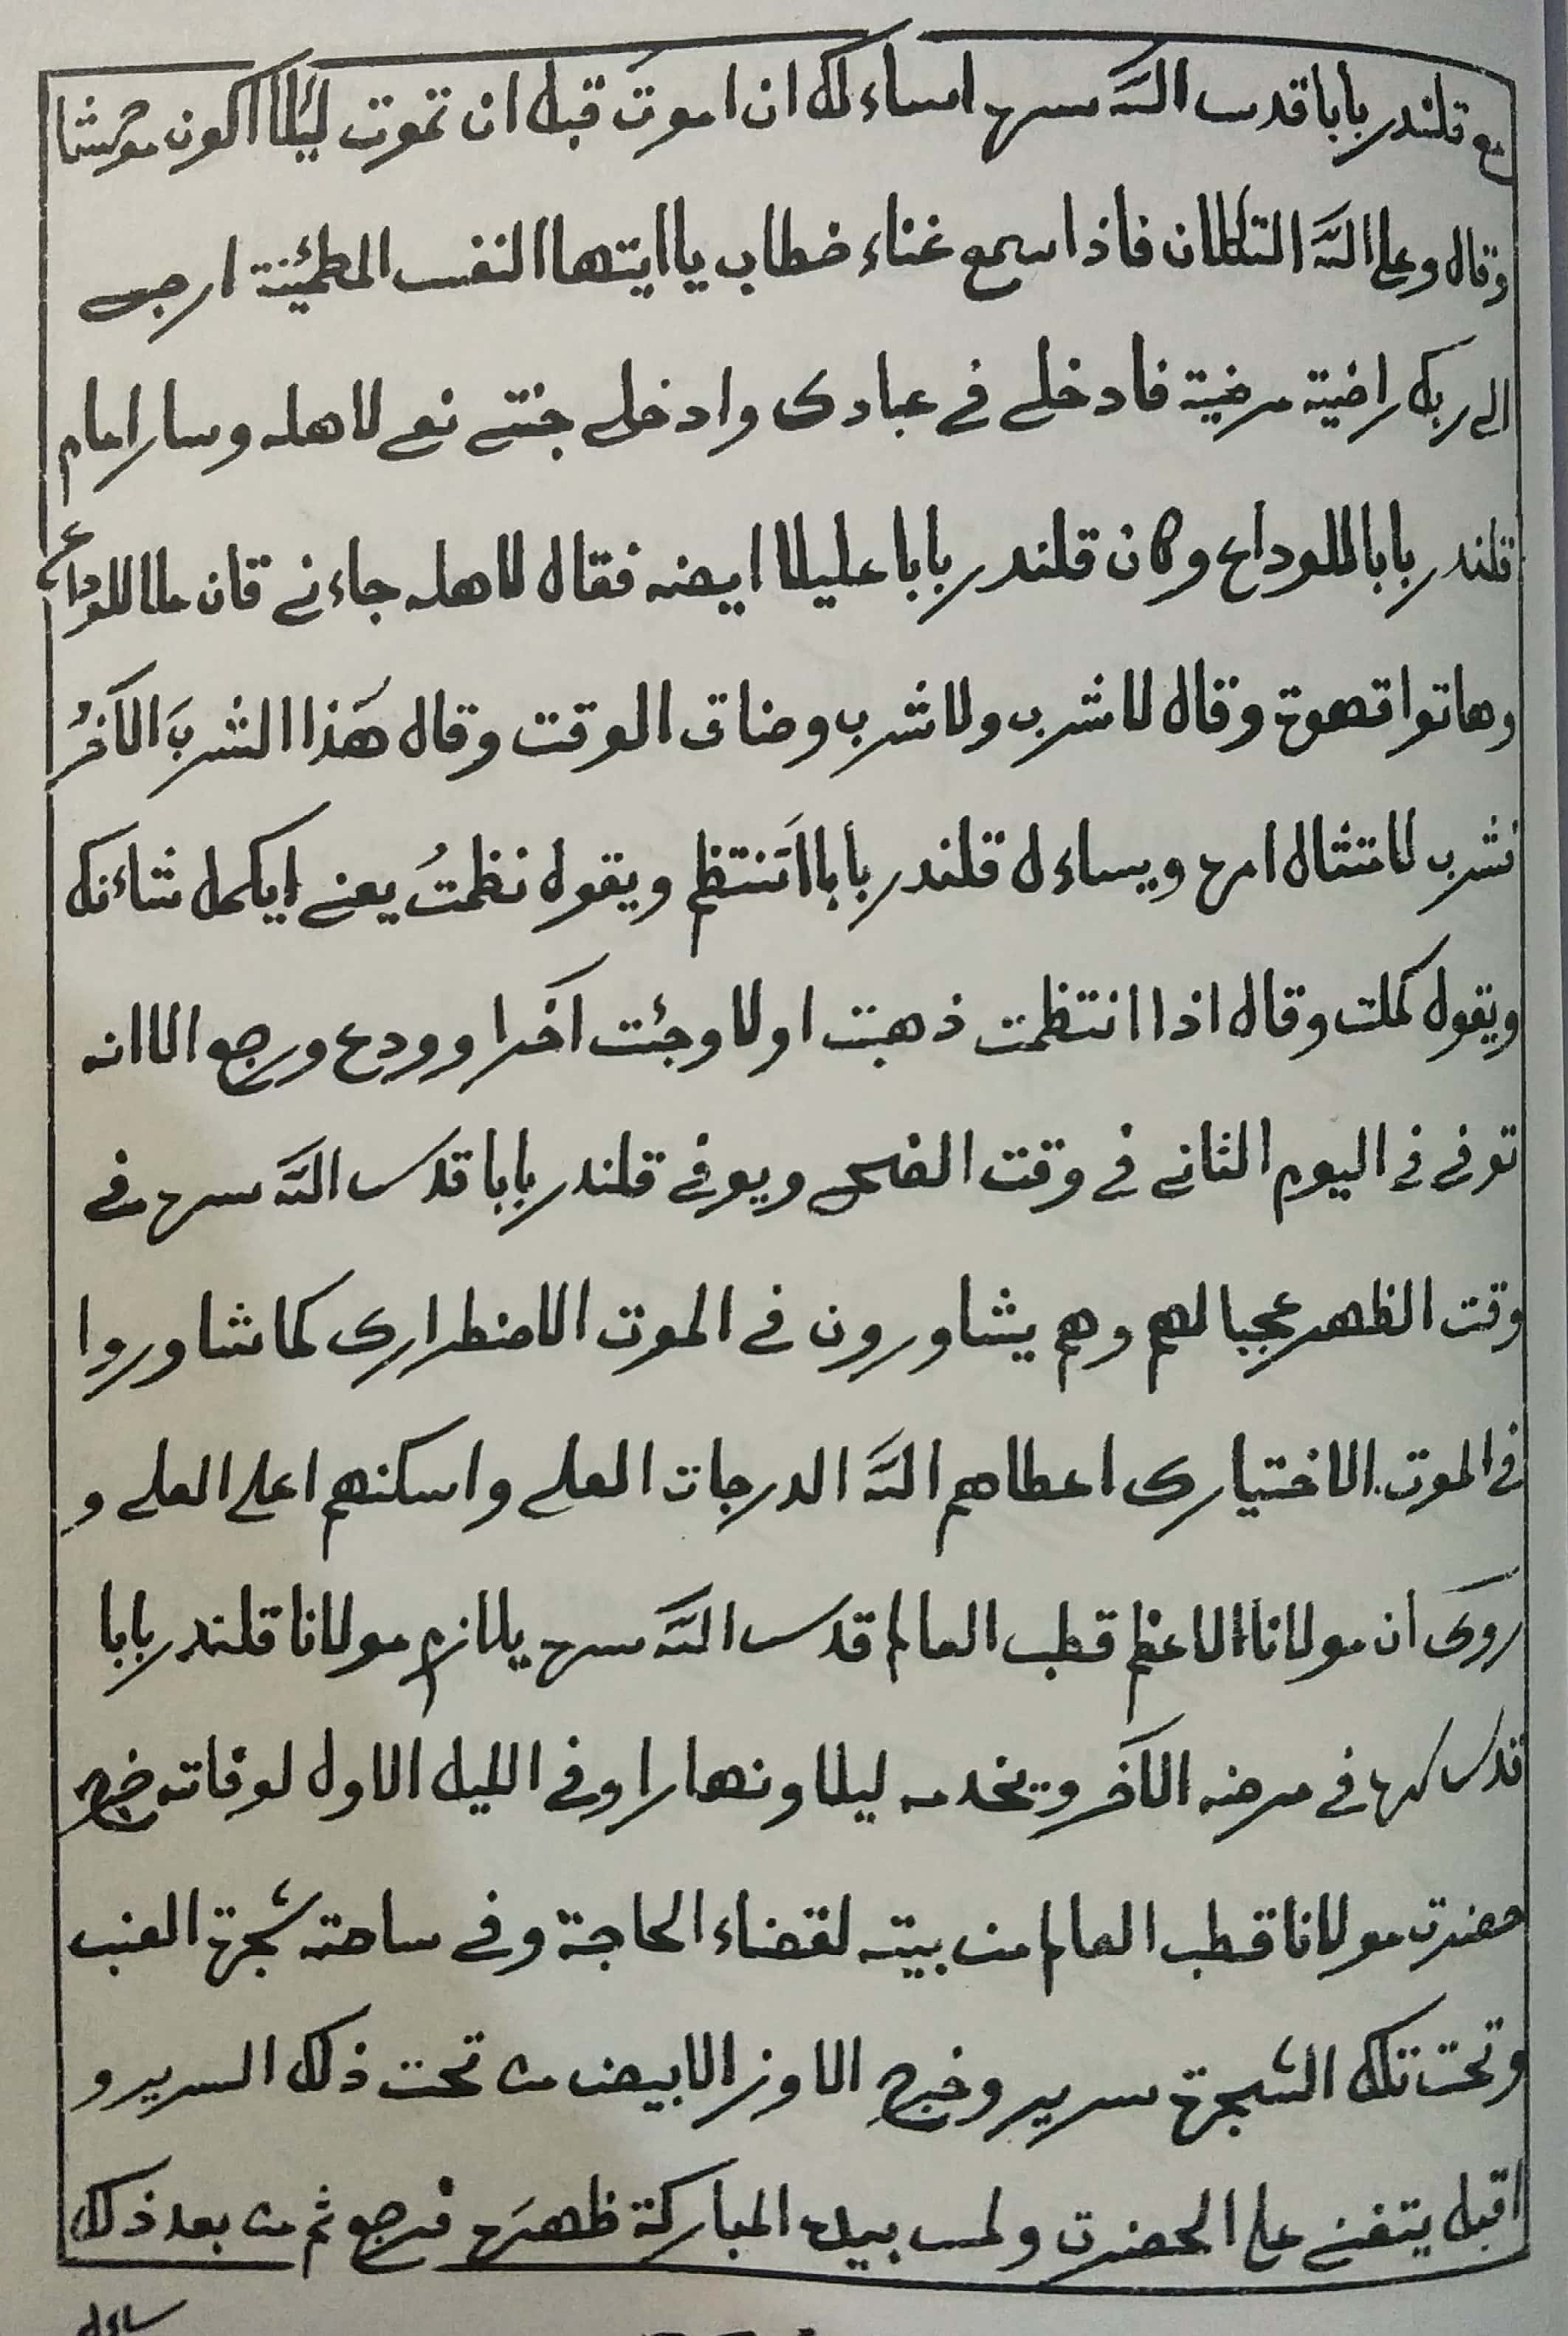 مع قلندر بابا قدس الله سره اساءلك ان اموت قبل ان تموت ليلا اكون
وقال وعلى الله التكلان فاذا سمع غناء خطاب يا ايتها النفس المطمئنة ارجعى
الى ربك راضية مرضية فادخلى فى عبادى وادخلى جنتى نعى لاهله وسار امام
قلندر بابا للوداع وكان قلندر بابا عليلا ايضه فقال لاهله جاءنى قان ملا للوداع
وهاتوا قهوة وقال لاشرب ولاشرب وضاق الوقت وقال هَذا الشربَ الآخرُ
نشرب لامتثال امره ويساءل قلندر بابا اتَنتظم ويقول نظمتُ يعنى ايكمل شاءنك
ويقول كملت وقال اذا انتظمت ذهبت اولا وجئت آخرا وودع ورجع الا انه
توفى فى اليوم الثانى فى وقت الضحى ويوفى قلندر بابا قدس الله سره فى
وقت الظهر عجبا لهم وهم يشاورون فى الموت الاضطرارى كما شاوروا
فى الموت الاختيارى اعطاهم الله الدرجات العلى واسكنهم اعلى العلى و
روى ان مولانا الاعظم قطب العالم قدس الله سره يلازم مولانا قلندر بابا
قدس سره فى مرضه الآخر ويخدمه ليلا ونهارا وفى الليل الاول لوفاته خرج
حضرت مولانا قطب العالم من بيته لقضاء الحاجة وفى ساحته شجرة العنب
وتحت تلك الشجرة سرير وخرج الاوز الابيض من تحت ذلك السرير و
اقبل يتغنى على الحضرت ولمس بيده المباركة ظهرَه فرجع ثم من بعد ذلك